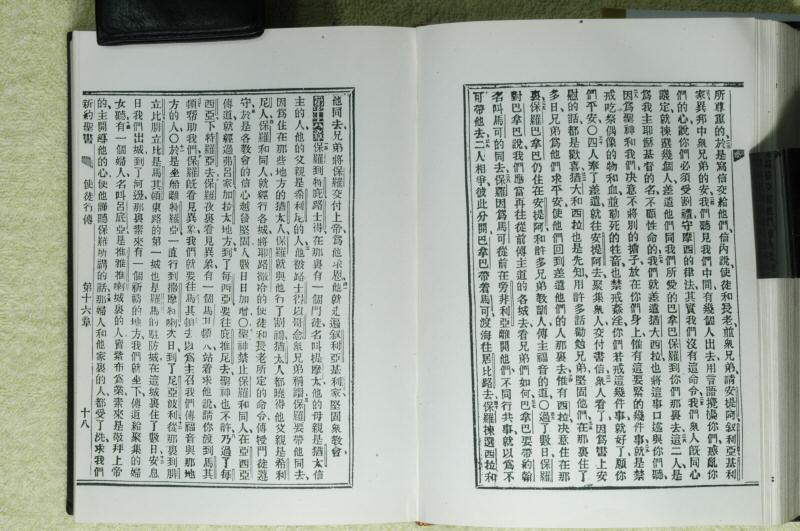 所尊重的、於是寫信交給他們、信內說、使徒和長老並衆兄弟、請安提阿叙利亞基利
家異邦中衆兄弟的安、我們聽見我們中間有幾個人出去、用言語攪擾你們、惑亂你
們的心、說你們必須受割禮、守摩西的律法、其實我們沒有這命令、我們衆人旣同心
議定、就揀選幾個人、差遣他們同我們所愛的巴拿巴保羅到你們那裏去、這二人是
爲我主耶穌基督的名、不顧性命的、我們就差遣猶大西拉、也將這事口述與你們聽、
因爲聖神和我們决意不將別的擔子放在你們身上、惟有這要緊的幾件事、就是禁
戒吃祭偶像的物和血、並勒死的牲畜、也禁戒姦淫、你們若戒這幾件事就好了、願你
們平安○四人奉了差遣、就往安提阿去、聚集衆人、交付書信、衆人看了、因爲書上安
慰的話都是歡喜、猶大和西拉也是先知、用許多話勸勉兄弟、堅固他們、在那裏住了
多日、兄弟爲他們求平安、使他們回到差遣他們的人那裏去、惟有西拉决意住在那
裏、保羅巴拿巴仍住在安提阿、和許多兄弟教訓人傳主福音的道○過了數日、保羅
對巴拿巴說、我們應當再往從前傳主道的各城去、看兄弟們如何、巴拿巴要帶約翰
名叫馬可的同去、保羅因爲馬可從前在旁非利亞離開他們、不同行共事、就以爲不
可帶他去、二人相爭、彼此分開、巴拿巴帶着馬可渡海往居比路去、保羅揀選西拉和
他同去、兄弟將保羅交付上帝、爲他求恩、他就走遍叙利亞基利家、堅固衆教會
第十六章 保羅到特庇路士得、在那裏有一個門徒名叫提摩太、他的母親是猶太信
主的人、他的父親是希利尼的人、他被路士得以哥念衆兄弟稱讚、保羅要帶他同去、
因爲住在那些地方的猶太人、保羅就與他行了割禮、猶太人都曉得他父親是希利
尼人、保羅和同人就經行各城、將耶路撒冷的使徒和長老所定的命令、傳授門徒遵
守、於是各教會的信心越發堅固、人數日日加增○聖神禁止保羅和同人在亞西亞
傳道、就經過弗呂家加拉太地方、到了每西亞、要往庇推尼去、聖神也不許、乃過了每
西亞、下特羅亞去、保羅夜裏看見異象、有一個馬其頓人站着求他說、請你渡到馬其
頓帮助我們、保羅旣看見異象、我們就要往馬其頓去、以爲主召我們傳福音與那地
方的人○於是坐船離特羅亞、一直行到撒摩和喇、次日到了尼亞波利、從那裏到腓
立比、腓立比是馬其頓東路的第一城、也是羅馬的駐防城、在這城裏住了數日、安息
日我們出城、到了河邊、那裏素來有一個祈禱的地方、我們就坐下傳道給聚集的婦
女聽、有一個婦人名叫呂底亞、是推雅推喇城裏的人、賣紫布爲業、素來是敬拜上帝
的、主開導他的心、使他謹聽保羅所講的話、那婦人和他家裏的人都受了洗、求我們
新約聖書 使徒行傳 第十六章 十八